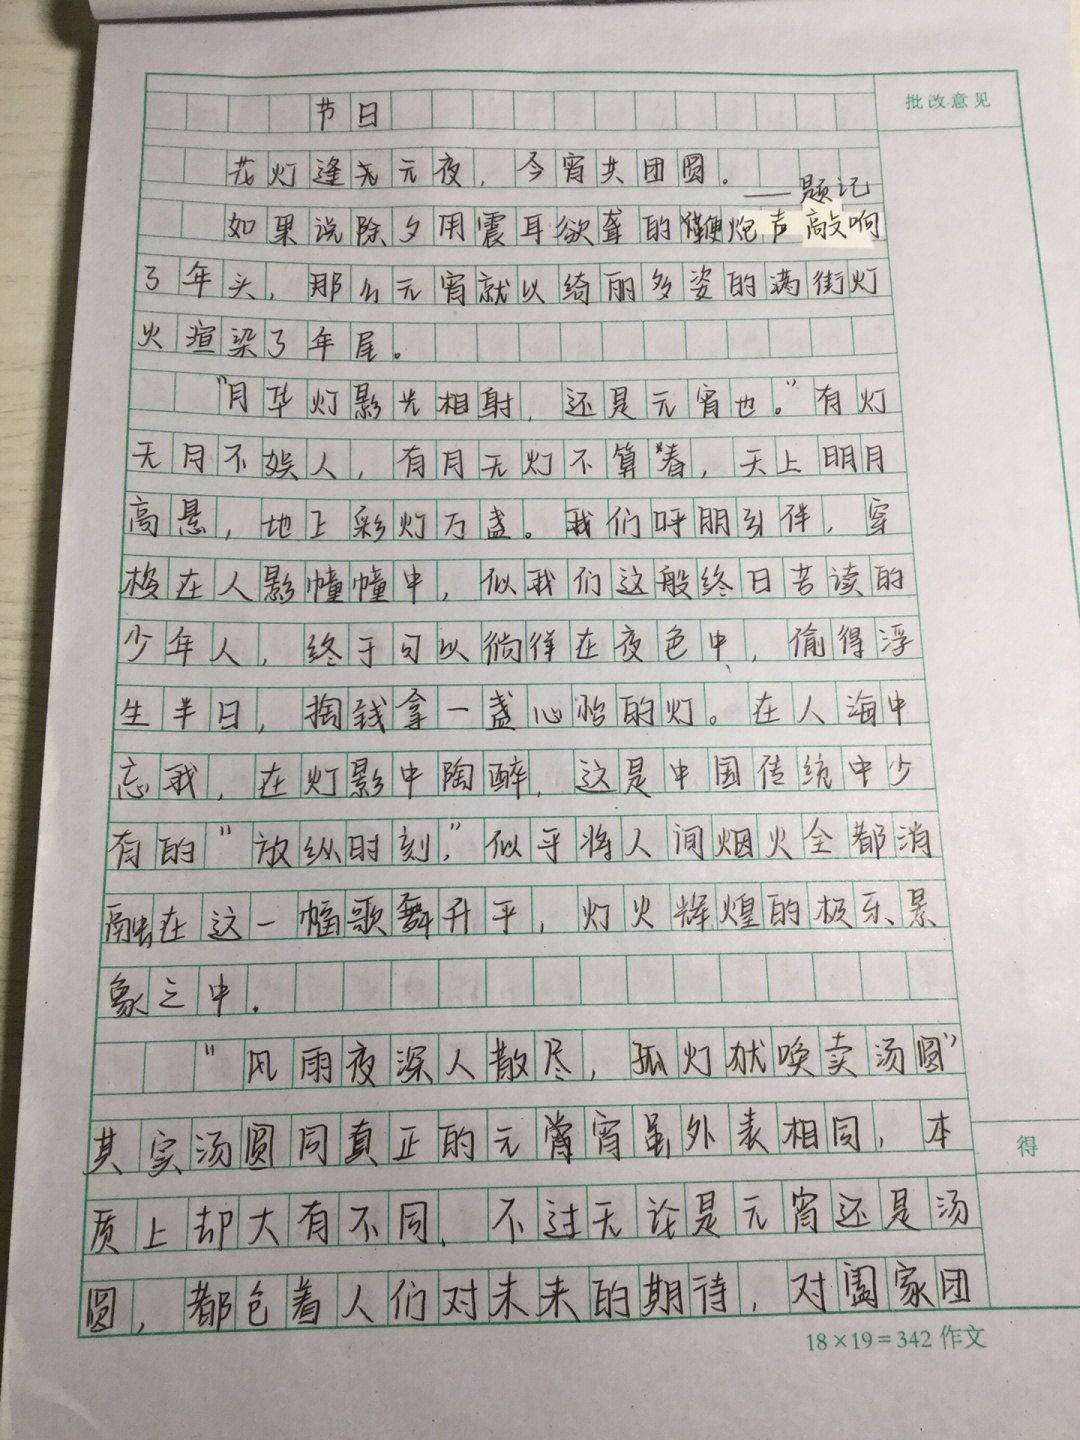 批改意见
节日
花灯逢元夜，今宵共团圆。
——题记
如果说除夕用震耳欲聋的鞭炮声敲响
了年头，那么元宵就以绮丽多姿的满街灯
火渲染了年尾。
“月华灯影光相射，还是元宵也。”有灯
无月不娱人，有月无灯不算春，天上明月
高悬，地上彩灯万盏。我们呼朋引伴，穿
梭在人影幢幢中，似我们这般终日苦读的
少年人，终于可以徜徉在夜色中，偷得浮
生半日，掏钱拿一盏心怡的灯。在人海中
忘我，在灯影中陶醉，这是中国传统中少
有的“放纵时刻，”似乎将人间烟火全都消
融在这一幅歌舞升平，灯火辉煌的极乐景
象之中.
“风雨夜深人散尽，孤灯犹唤卖汤圆”
其实汤圆同真正的元宵虽外表相同，本
质上却大有不同，不过无论是元宵还是汤
圆，都包着人们对未来的期待，对阖家团
得
18×19=342 作文